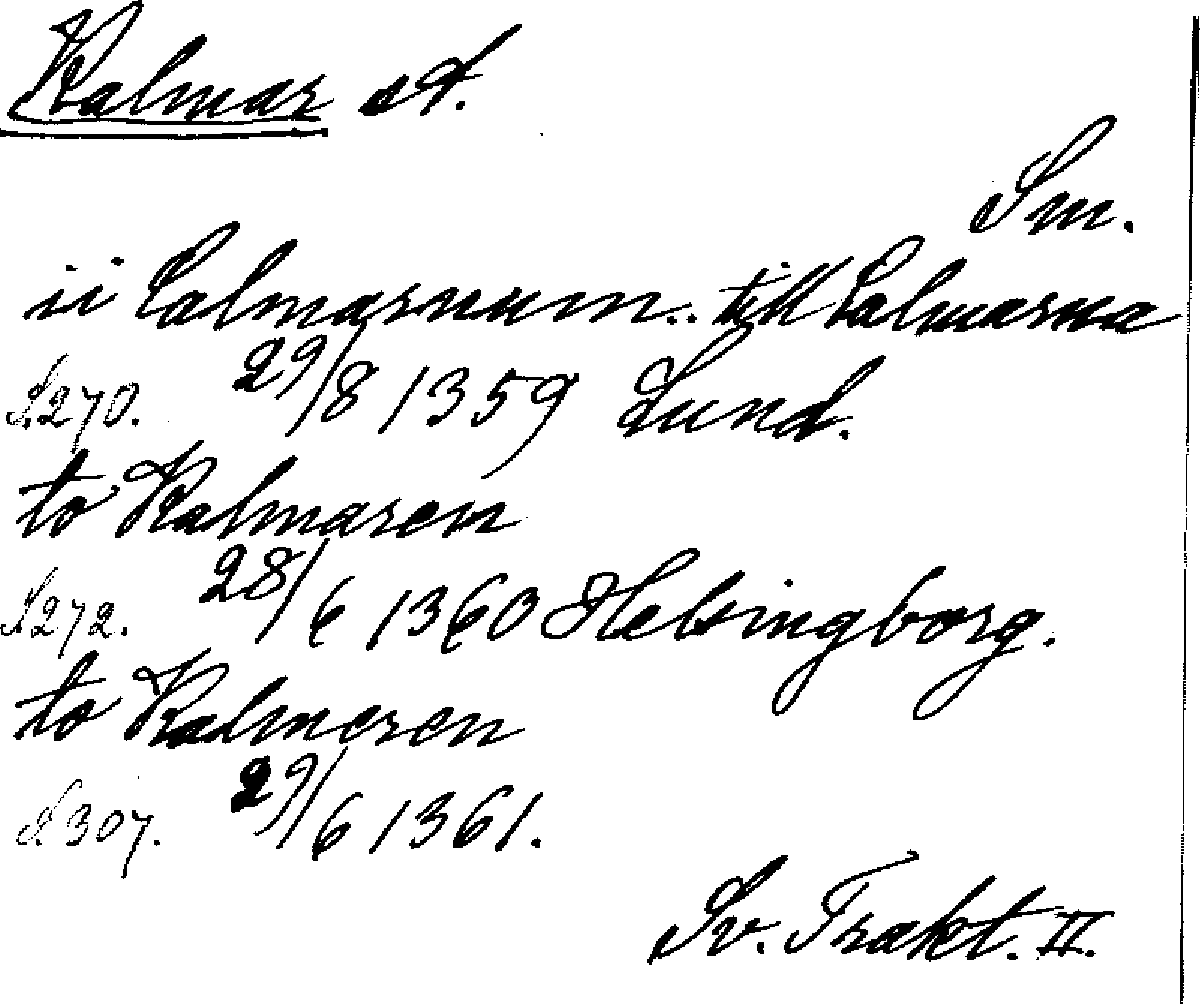 Kalmar st.
Sm.
ii Calmarnum.. till Calmarna
S.270. 29/8 1359 Lund.
to Kalmaren
S.272. 28/6 1360 Helsingborg.
to Kalmeren
S.307. 29/6 1361.
Sv. Trakt. II.